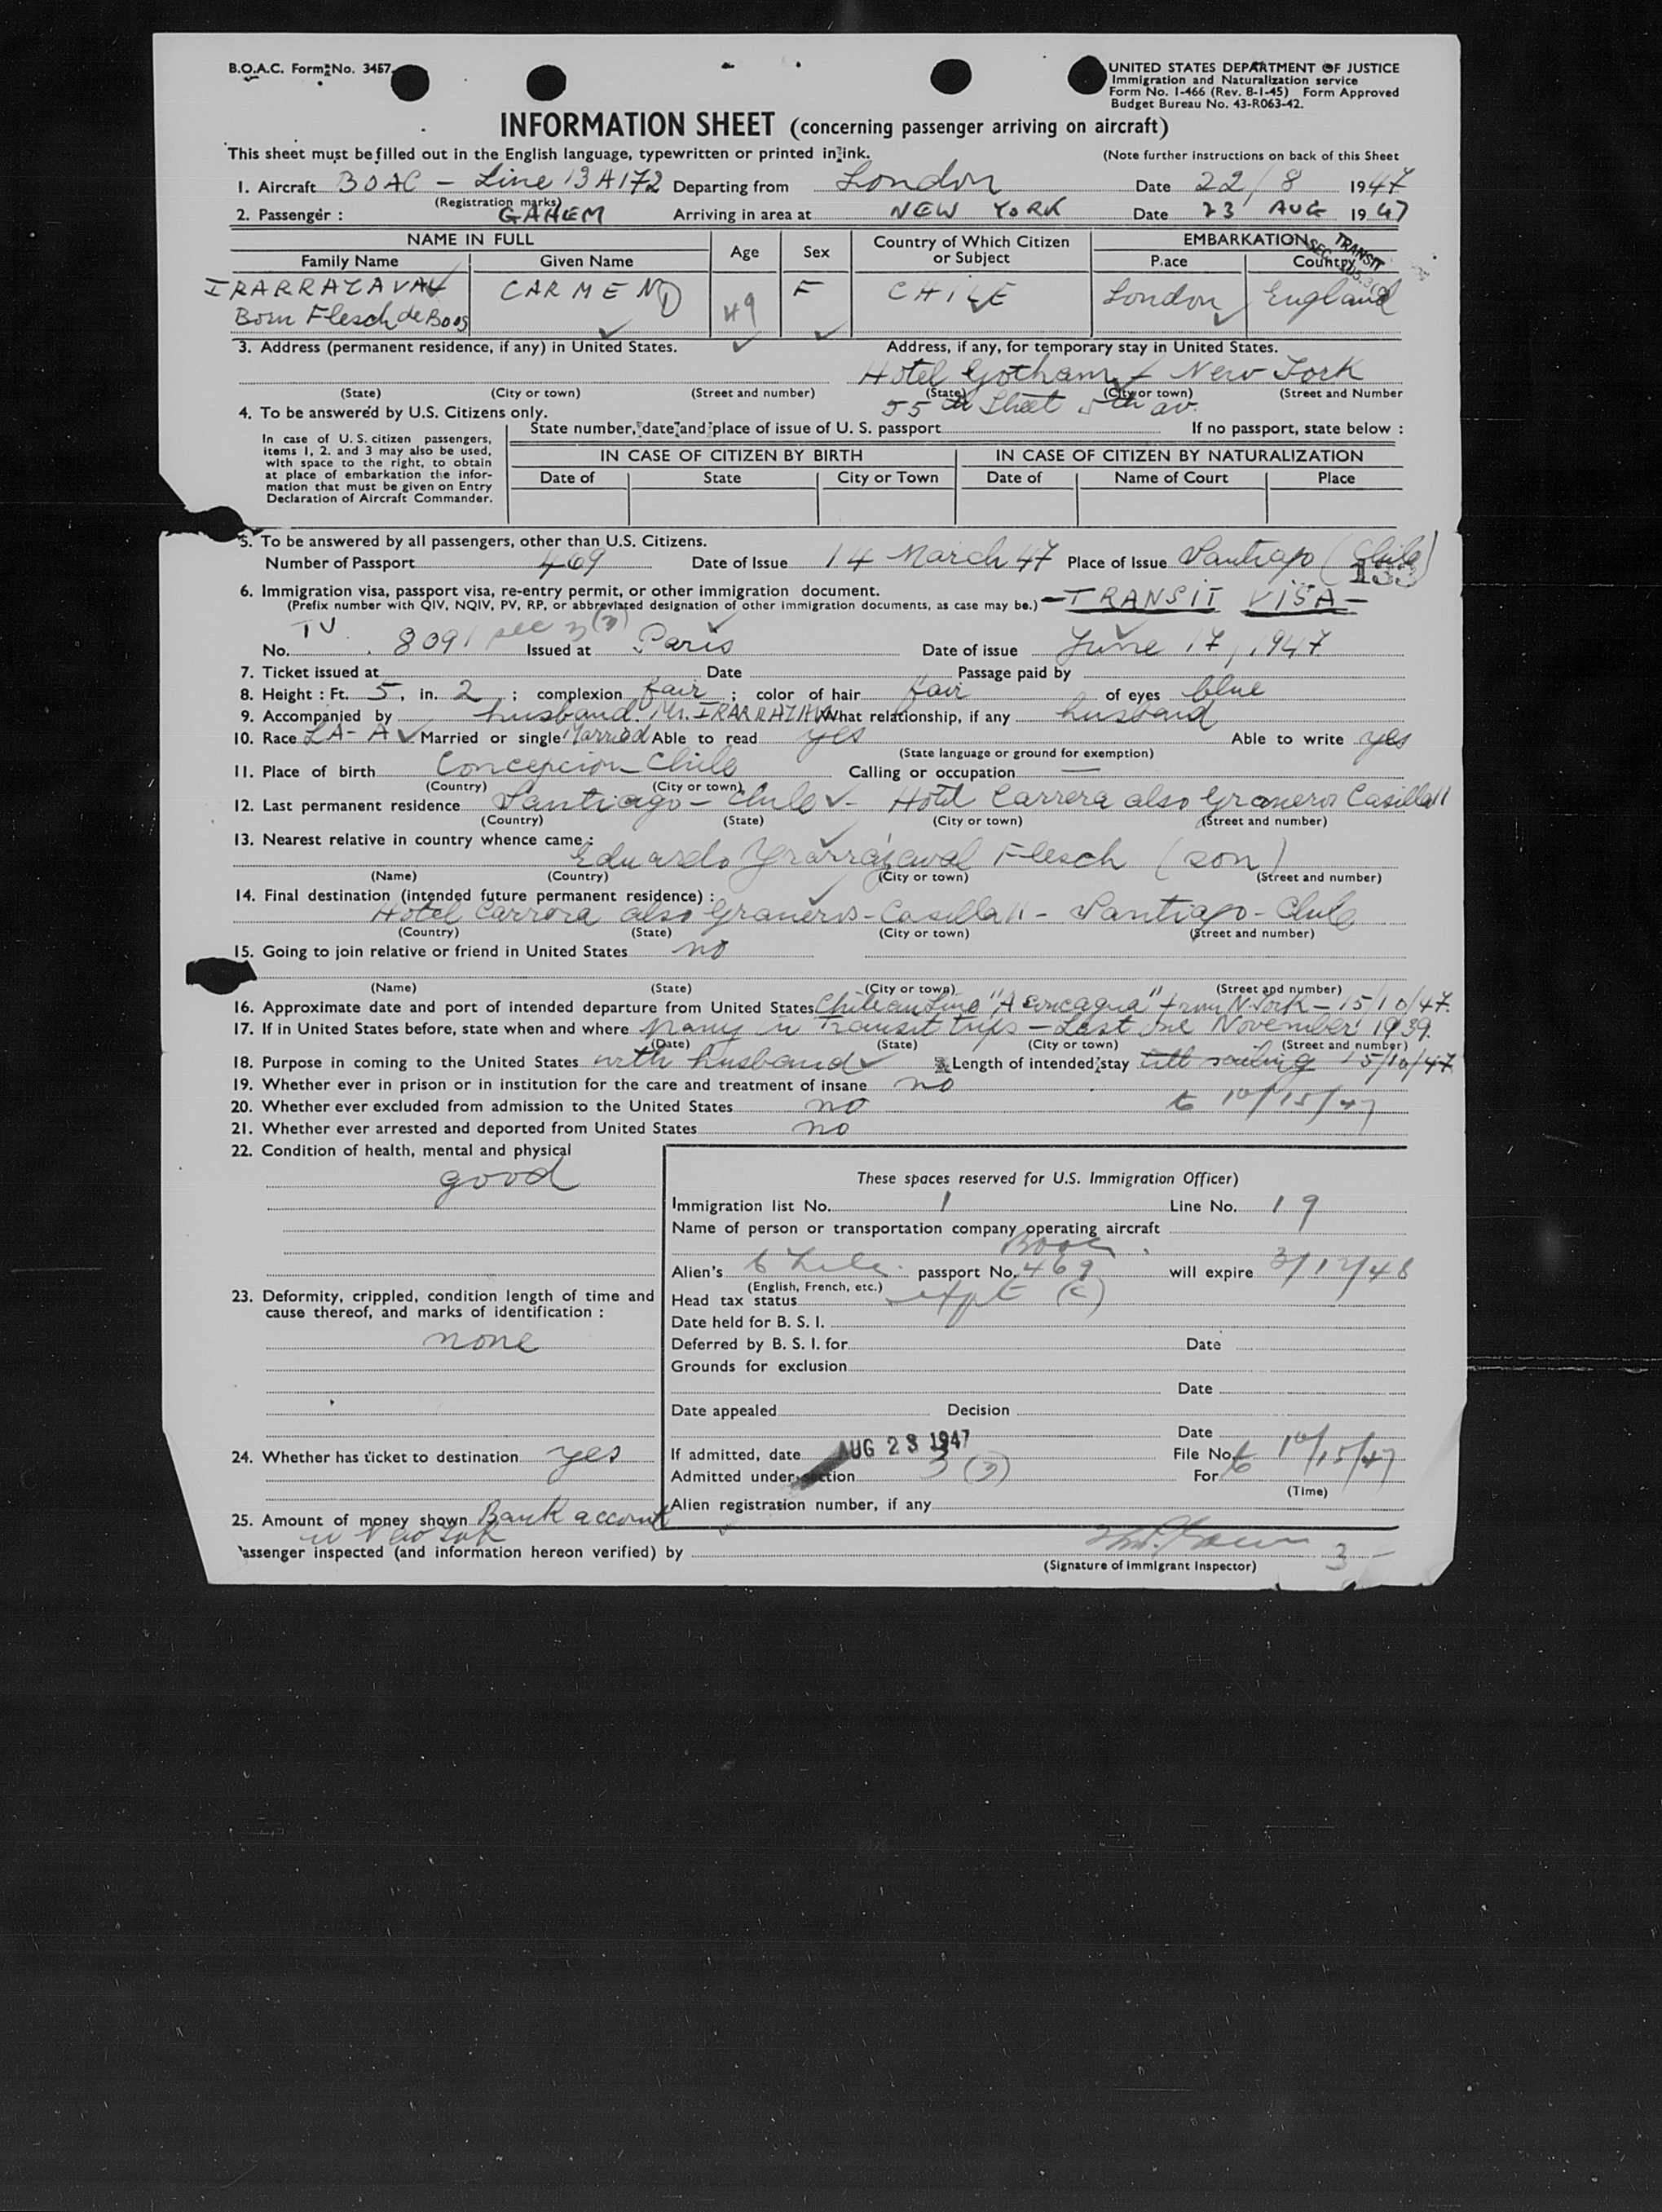 B.O.A.C. Form No. 3457
UNITED STATES DEPARTMENT OF JUSTICE
Immigration and Naturalization service
Form No. I-466 (Rev. 8-1-45) Form Approved
Budget Bureau No. 43-R063-42.
INFORMATION SHEET (concerning passenger arriving on aircraft)
This sheet must be filled out in the English language, typewritten or printed in ink.
(Note further instructions on back of this Sheet
1. Aircraft BOAC - Line 13A172 Departing from London Date 22/8 1947
(Registration marks)
2. Passenger : GAHEM Arriving in area at NEW YORK Date 23 AUG 1947
NAME IN FULL Age Sex Country of Which Citizen or Subject EMBARKATION
Family Name Given Name Place Country
TRANSIT
IRARRAZAVAL CARMEN 49 F CHILE London England
Born Flesch de Boos
3. Address (permanent residence, if any) in United States. Address, if any, for temporary stay in United States.
Hotel Gotham - New York
(State) (City or town) (Street and number) (State) (City or town) (Street and Number
55th Street 5th av.
4. To be answered by U.S. Citizens only.
State number, date and place of issue of U. S. passport If no passport, state below :
In case of U. S. citizen passengers,
items 1, 2. and 3 may also be used,
with space to the right, to obtain
at place of embarkation the infor-
mation that must be given on Entry
Declaration of Aircraft Commander.
IN CASE OF CITIZEN BY BIRTH IN CASE OF CITIZEN BY NATURALIZATION
Date of State City or Town Date of Name of Court Place
5. To be answered by all passengers, other than U.S. Citizens.
Number of Passport 469 Date of Issue 14 March 47 Place of Issue Santiago (Chile)
133
6. Immigration visa, passport visa, re-entry permit, or other immigration document.
(Prefix number with QIV, NQIV, PV, RP, or abbreviated designation of other immigration documents, as case may be.) - TRANSIT VISA -
TV
No. 8091 sec 3(3) Issued at Paris Date of issue June 17, 1947
7. Ticket issued at Date Passage paid by
8. Height : Ft. 5, in. 2 ; complexion fair ; color of hair fair of eyes blue
9. Accompanied by husband. Mr. IRARRAZAVAL What relationship, if any husband
10. Race LA-A Married or single Married Able to read yes Able to write yes
(State language or ground for exemption)
11. Place of birth Concepcion Chile Calling or occupation —
(Country) (City or town)
12. Last permanent residence Santiago - Chile - Hotel Carrera also Graneros Casilla 11
(Country) (State) (City or town) (Street and number)
13. Nearest relative in country whence came :
Eduardo Yrarrazaval Flesch (son)
(Name) (Country) (City or town) (Street and number)
14. Final destination (intended future permanent residence) :
Hotel Carrera also Graneros - Casilla 11 - Santiago - Chile
(Country) (State) (City or town) (Street and number)
15. Going to join relative or friend in United States no
(Name) (State) (City or town) (Street and number)
16. Approximate date and port of intended departure from United States Chilean Line "Aconcagua" from N.York - 15/10/47.
17. If in United States before, state when and where many in transit trips - Last one November 1939.
(Date) (State) (City or town) (Street and number)
18. Purpose in coming to the United States with husband Length of intended stay till sailing 15/10/47
19. Whether ever in prison or in institution for the care and treatment of insane no
20. Whether ever excluded from admission to the United States no to 10/15/47
21. Whether ever arrested and deported from United States no
22. Condition of health, mental and physical
good
These spaces reserved for U.S. Immigration Officer)
Immigration list No. 1 Line No. 19
Name of person or transportation company operating aircraft
BOAC
Alien's Chile passport No. 469 will expire 3/12/48
(English, French, etc.)
Head tax status expt (c)
Date held for B. S. I.
Deferred by B. S. I. for Date
Grounds for exclusion
Date
Date appealed Decision
Date
23. Deformity, crippled, condition length of time and
cause thereof, and marks of identification :
none
24. Whether has ticket to destination yes
If admitted, date AUG 23 1947 File No.
Admitted under section 3(3) For to 10/15/47
(Time)
Alien registration number, if any
25. Amount of money shown Bank account
in New York
Passenger inspected (and information hereon verified) by
(Signature of Immigrant Inspector) 3 -